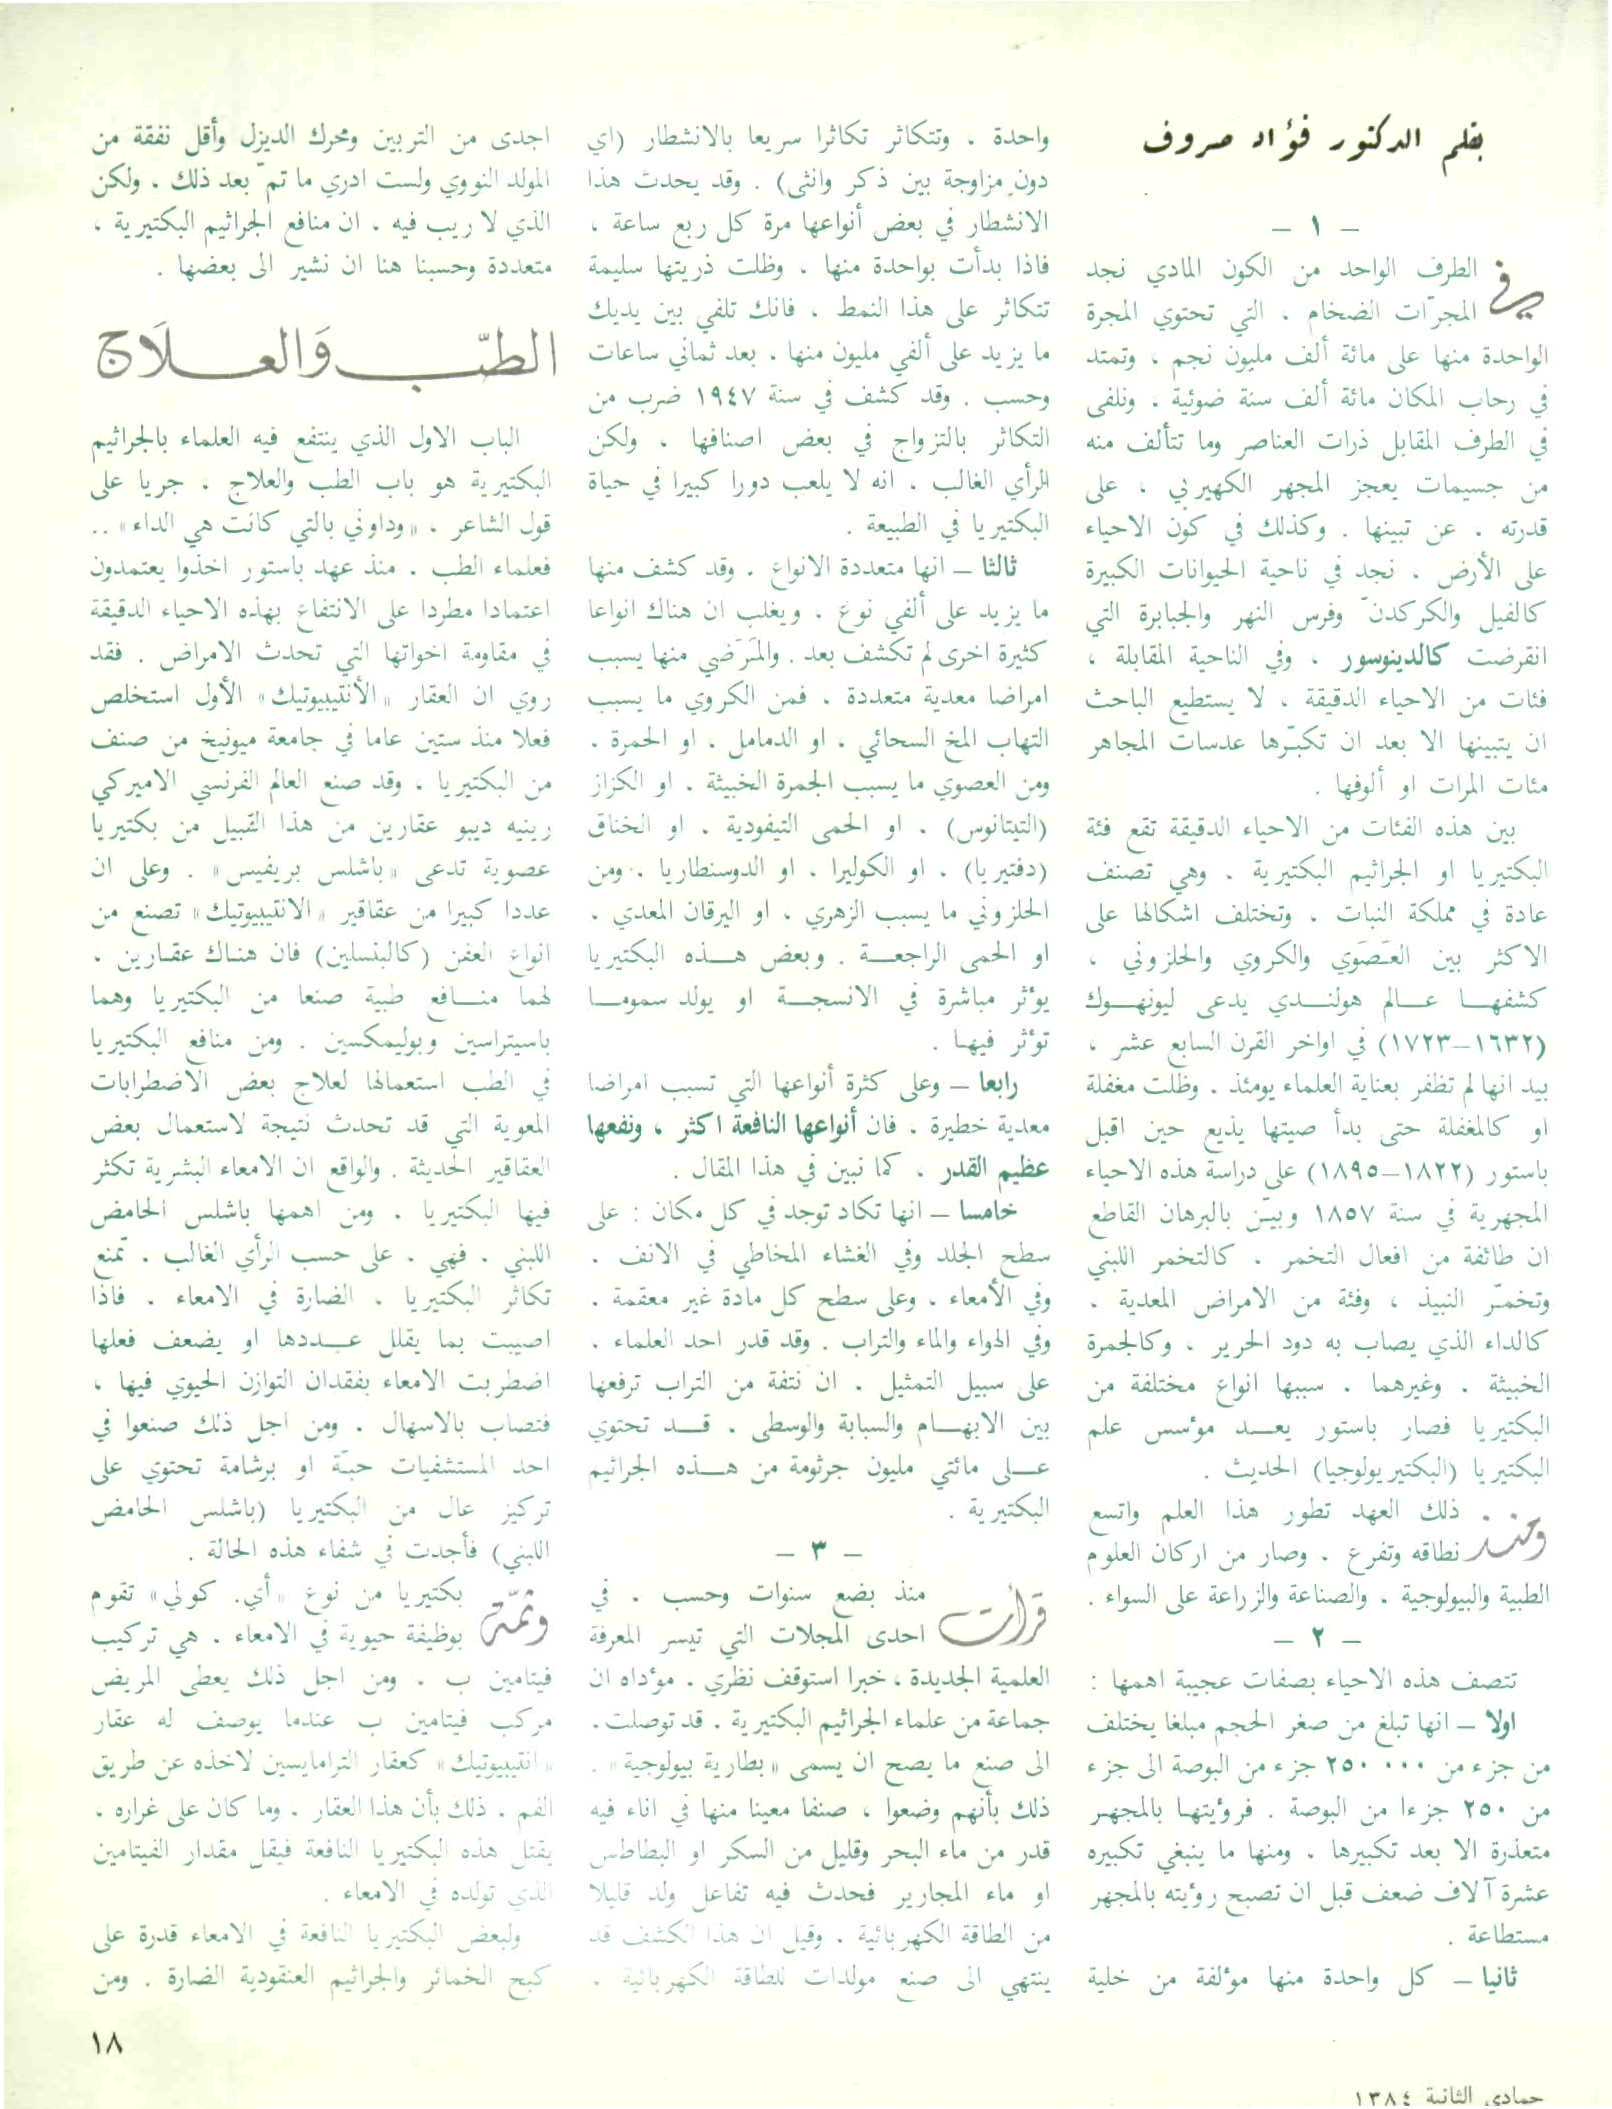 بقلم الدكتور فؤاد صروف
– ١ –
في الطرف الواحد من الكون المادي نجد
المجرّات الضخام ، التي تحتوي المجرة
الواحدة منها على مائة ألف مليون نجم ، وتمتد
في رحاب المكان مائة ألف سنة ضوئية ، ونلفى
في الطرف المقابل ذرات العناصر وما تتألف منه
من جسيمات يعجز المجهر الكهيربي ، على
قدرته ، عن تبينها . وكذلك في كون الاحياء
على الأرض ، نجد في ناحية الحيوانات الكبيرة
كالفيل والكركدنّ وفرس النهر والجبابرة التي
انقرضت كالدينوسور ، وفي الناحية المقابلة ،
فئات من الاحياء الدقيقة ، لا يستطيع الباحث
ان يتبينها الا بعد ان تكبّرها عدسات المجاهر
مئات المرات او ألوفها .
بين هذه الفئات من الاحياء الدقيقة تقع فئة
البكتيريا او الجراثيم البكتيرية . وهي تصنف
عادة في مملكة النبات ، وتختلف اشكالها على
الاكثر بين العَصَوي والكروي والحلزوني ،
كشفهـا عـالم هولنـدي يدعى ليونهـوك
(١٦٣٢–١٧٢٣) في اواخر القرن السابع عشر ،
بيد انها لم تظفر بعناية العلماء يومئذ . وظلت مغفلة
او كالمغفلة حتى بدأ صيتها يذيع حين اقبل
باستور (١٨٢٢–١٨٩٥) على دراسة هذه الاحياء
المجهرية في سنة ١٨٥٧ وبيّن بالبرهان القاطع
ان طائفة من افعال التخمر ، كالتخمر اللبني
وتخمّر النبيذ ، وفئة من الامراض المعدية ،
كالداء الذي يصاب به دود الحرير ، وكالجمرة
الخبيثة ، وغيرهما ، سببها انواع مختلفة من
البكتيريا فصار باستور يعـد مؤسس علم
البكتيريا (البكتيريولوجيا) الحديث .
ومنذ ذلك العهد تطور هذا العلم واتسع
نطاقه وتفرع ، وصار من اركان العلوم
الطبية والبيولوجية ، والصناعة والزراعة على السواء .
– ٢ –
تتصف هذه الاحياء بصفات عجيبة اهمها :
اولا – انها تبلغ من صغر الحجم مبلغا يختلف
من جزء من ٢٥٠٠٠٠ جزء من البوصة الى جزء
من ٢٥٠ جزءا من البوصة . فرؤيتها بالمجهر
متعذرة الا بعد تكبيرها ، ومنها ما ينبغي تكبيره
عشرة آلاف ضعف قبل ان تصبح رؤيته بالمجهر
مستطاعة .
ثانيا – كل واحدة منها مؤلفة من خلية
واحدة ، وتتكاثر تكاثرا سريعا بالانشطار (اي
دون مزاوجة بين ذكر وانثى) . وقد يحدث هذا
الانشطار في بعض أنواعها مرة كل ربع ساعة ،
فاذا بدأت بواحدة منها ، وظلت ذريتها سليمة
تتكاثر على هذا النمط ، فانك تلفي بين يديك
ما يزيد على ألفي مليون منها ، بعد ثماني ساعات
وحسب . وقد كشف في سنة ١٩٤٧ ضرب من
التكاثر بالتزواج في بعض اصنافها ، ولكن
الرأي الغالب ، انه لا يلعب دورا كبيرا في حياة
البكتيريا في الطبيعة .
ثالثا – انها متعددة الانواع ، وقد كشف منها
ما يزيد على ألفي نوع ، ويغلب ان هناك انواعا
كثيرة اخرى لم تكشف بعد . والمَرَضي منها يسبب
امراضا معدية متعددة ، فمن الكروي ما يسبب
التهاب المخ السحائي ، او الدمامل ، او الحمرة ،
ومن العصوي ما يسبب الجمرة الخبيثة ، او الكزاز
(التيتانوس) ، او الحمى التيفودية ، او الخناق
(دفتيريا) ، او الكوليرا ، او الدوسنطاريا ، ومن
الحلزوني ما يسبب الزهري ، او اليرقان المعدي ،
او الحمى الراجعـة . وبعض هـذه البكتيريا
يؤثر مباشرة في الانسجـة او يولد سمومـا
تؤثر فيها .
رابعا – وعلى كثرة أنواعها التي تسبب امراضا
معدية خطيرة ، فان أنواعها النافعة اكثر ، ونفعها
عظيم القدر ، كما نبين في هذا المقال .
خامسا – انها تكاد توجد في كل مكان : على
سطح الجلد وفي الغشاء المخاطي في الانف ،
وفي الأمعاء ، وعلى سطح كل مادة غير معقمة ،
وفي الهواء والماء والتراب . وقد قدر احد العلماء ،
على سبيل التمثيل ، ان نتفة من التراب ترفعها
بين الابهـام والسبابة والوسطى ، قـد تحتوي
عـلى مائتي مليون جرثومة من هـذه الجراثيم
البكتيرية .
– ٣ –
قرأت منذ بضع سنوات وحسب ، في
احدى المجلات التي تيسر المعرفة
العلمية الجديدة ، خبرا استوقف نظري ، مؤداه ان
جماعة من علماء الجراثيم البكتيرية ، قد توصلت ،
الى صنع ما يصح ان يسمى «بطارية بيولوجية» ،
ذلك بأنهم وضعوا ، صنفا معينا منها في اناء فيه
قدر من ماء البحر وقليل من السكر او البطاطس
او ماء المجارير فحدث فيه تفاعل ولد قليلا
من الطاقة الكهربائية ، وقيل ان هذا الكشف قد
ينتهي الى صنع مولدات للطاقة الكهربائية ،
اجدى من التربين ومحرك الديزل وأقل نفقة من
المولد النووي ولست ادري ما تمّ بعد ذلك ، ولكن
الذي لا ريب فيه ، ان منافع الجراثيم البكتيرية ،
متعددة وحسبنا هنا ان نشير الى بعضها .
الطبّ وَالعلَاج
الباب الاول الذي ينتفع فيه العلماء بالجراثيم
البكتيرية هو باب الطب والعلاج ، جريا على
قول الشاعر ، «وداوني بالتي كانت هي الداء» ..
فعلماء الطب ، منذ عهد باستور اخذوا يعتمدون
اعتمادا مطردا على الانتفاع بهذه الاحياء الدقيقة
في مقاومة اخواتها التي تحدث الامراض . فقد
روي ان العقار «الأنتيبيوتيك» الأول استخلص
فعلا منذ ستين عاما في جامعة ميونيخ من صنف
من البكتيريا ، وقد صنع العالم الفرنسي الاميركي
رينيه ديبو عقارين من هذا القبيل من بكتيريا
عصوية تدعى «باشلس بريفيس» . وعلى ان
عددا كبيرا من عقاقير «الانتيبيوتيك» تصنع من
انواع العفن (كالبنسلين) فان هناك عقارين ،
لهما منـافع طبية صنعا من البكتيريا وهما
باسيتراسين وبوليمكسين . ومن منافع البكتيريا
في الطب استعمالها لعلاج بعض الاضطرابات
المعوية التي قد تحدث نتيجة لاستعمال بعض
العقاقير الحديثة . والواقع ان الامعاء البشرية تكثر
فيها البكتيريا ، ومن اهمها باشلس الحامض
اللبني ، فهي ، على حسب الرأي الغالب ، تمنع
تكاثر البكتيريا ، الضارة في الامعاء ، فاذا
اصيبت بما يقلل عـددها او يضعف فعلها
اضطربت الامعاء بفقدان التوازن الحيوي فيها ،
فتصاب بالاسهال ، ومن اجل ذلك صنعوا في
احد المستشفيات حبّة او برشامة تحتوي على
تركيز عال من البكتيريا (باشلس الحامض
اللبني) فأجدت في شفاء هذه الحالة .
وثمّة بكتيريا من نوع «أي. كولي» تقوم
بوظيفة حيوية في الامعاء ، هي تركيب
فيتامين ب ، ومن اجل ذلك يعطى المريض
مركب فيتامين ب عندما يوصف له عقار
«انتيبيوتيك» كعقار الترامايسين لاخذه عن طريق
الفم ، ذلك بأن هذا العقار ، وما كان على غراره ،
يقتل هذه البكتيريا النافعة فيقل مقدار الفيتامين
الذي تولده في الامعاء .
ولبعض البكتيريا النافعة في الامعاء قدرة على
كبح الخمائر والجراثيم العنقودية الضارة . ومن
١٨
جمادى الثانية ١٣٨٤